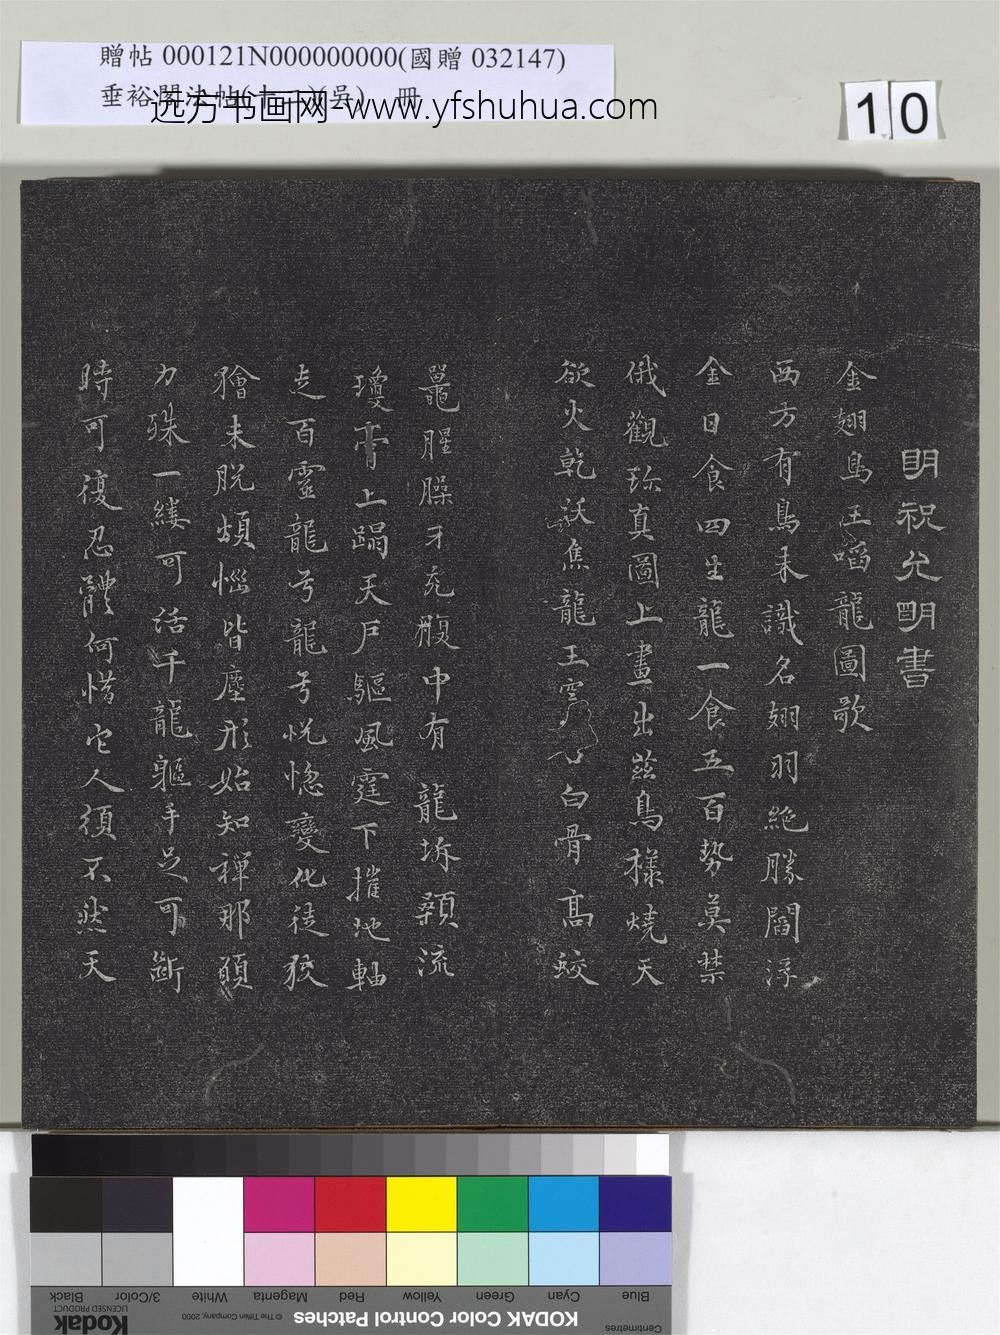 贈帖 000121N000000000(國贈 032147)
垂裕閣法帖(吳) 冊
远方书画网-www.yfshuhua.com
10
明祝允明書
金翅鳥王啗龍圖歌
西方有鳥未識名翅羽絶勝閻浮
金日食四生龍一食五百勢莫禁
俄觀珎真圖上畫出茲鳥樣燒天
欲火乾沃焦龍王宮心白骨高蛟
鼉腥臊牙充腹中有龍坼顙流
瓊膏上蹋天戶驅風霆下摧地軸
走百靈龍兮龍兮恍惚變化徒狡
獪未脱煩惱皆塵形始知禪那願
力殊一縷可活千龍軀手足可斷
時可復忍體何惜它人須不然天
Black
3/Color
White
Magenta
Red
Yellow
Green
Cyan
Blue
Kodak
LICENSED PRODUCT
© The Tiffen Company, 2000
KODAK Color Control Patches
Centimetres